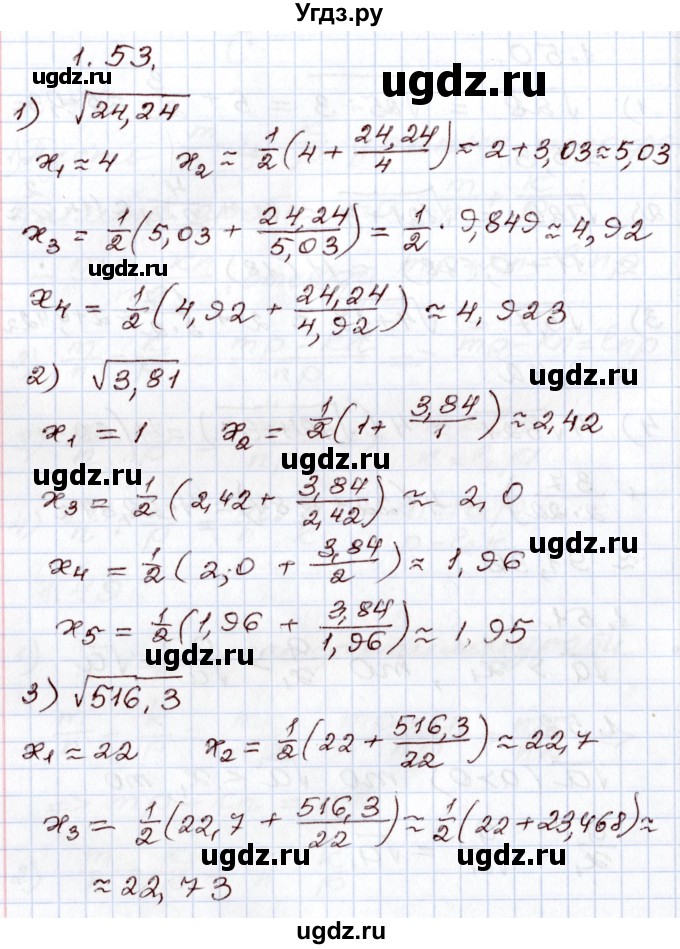 Угдз.ру
1.53.
ugdz.ru ugdz.ru
1) √24,24 ugdz.ru
x₁ ≈ 4 x₂ ≈ 1/2(4 + 24,24/4) ≈ 2 + 3,03 ≈ 5,03
x₃ = 1/2(5,03 + 24,24/5,03) = 1/2 · 9,849 ≈ 4,92
ugdz.ru ugdz.ru
x₄ = 1/2(4,92 + 24,24/4,92) ≈ 4,923
2) √3,81 ugdz.ru
x₁ = 1 x₂ = 1/2(1 + 3,84/1) ≈ 2,42
ugdz.ru ugdz.ru
x₃ = 1/2(2,42 + 3,84/2,42) ≈ 2,0
x₄ = 1/2(2,0 + 3,84/2) ≈ 1,96
ugdz.ru
x₅ = 1/2(1,96 + 3,84/1,96) ≈ 1,95
ugdz.ru ugdz.ru
3) √516,3
x₁ ≈ 22 x₂ = 1/2(22 + 516,3/22) ≈ 22,7
ugdz.ru
x₃ = 1/2(22,7 + 516,3/22) ≈ 1/2(22 + 23,468) ≈
ugdz.ru ugdz.ru
≈ 22,73
ugdz.ru